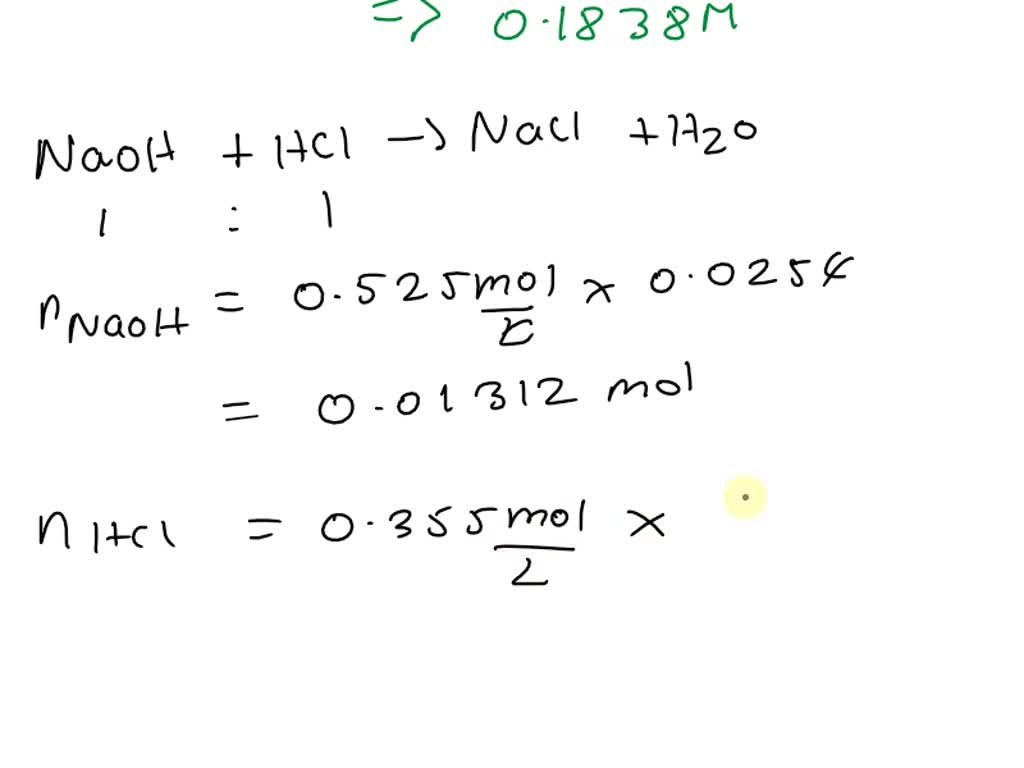 => 0.1838M
NaOH + HCl → NaCl + H2O
1 : 1
nNaOH = 0.525 mol/L × 0.025L
= 0.01312 mol
nHCl = 0.355 mol/L ×